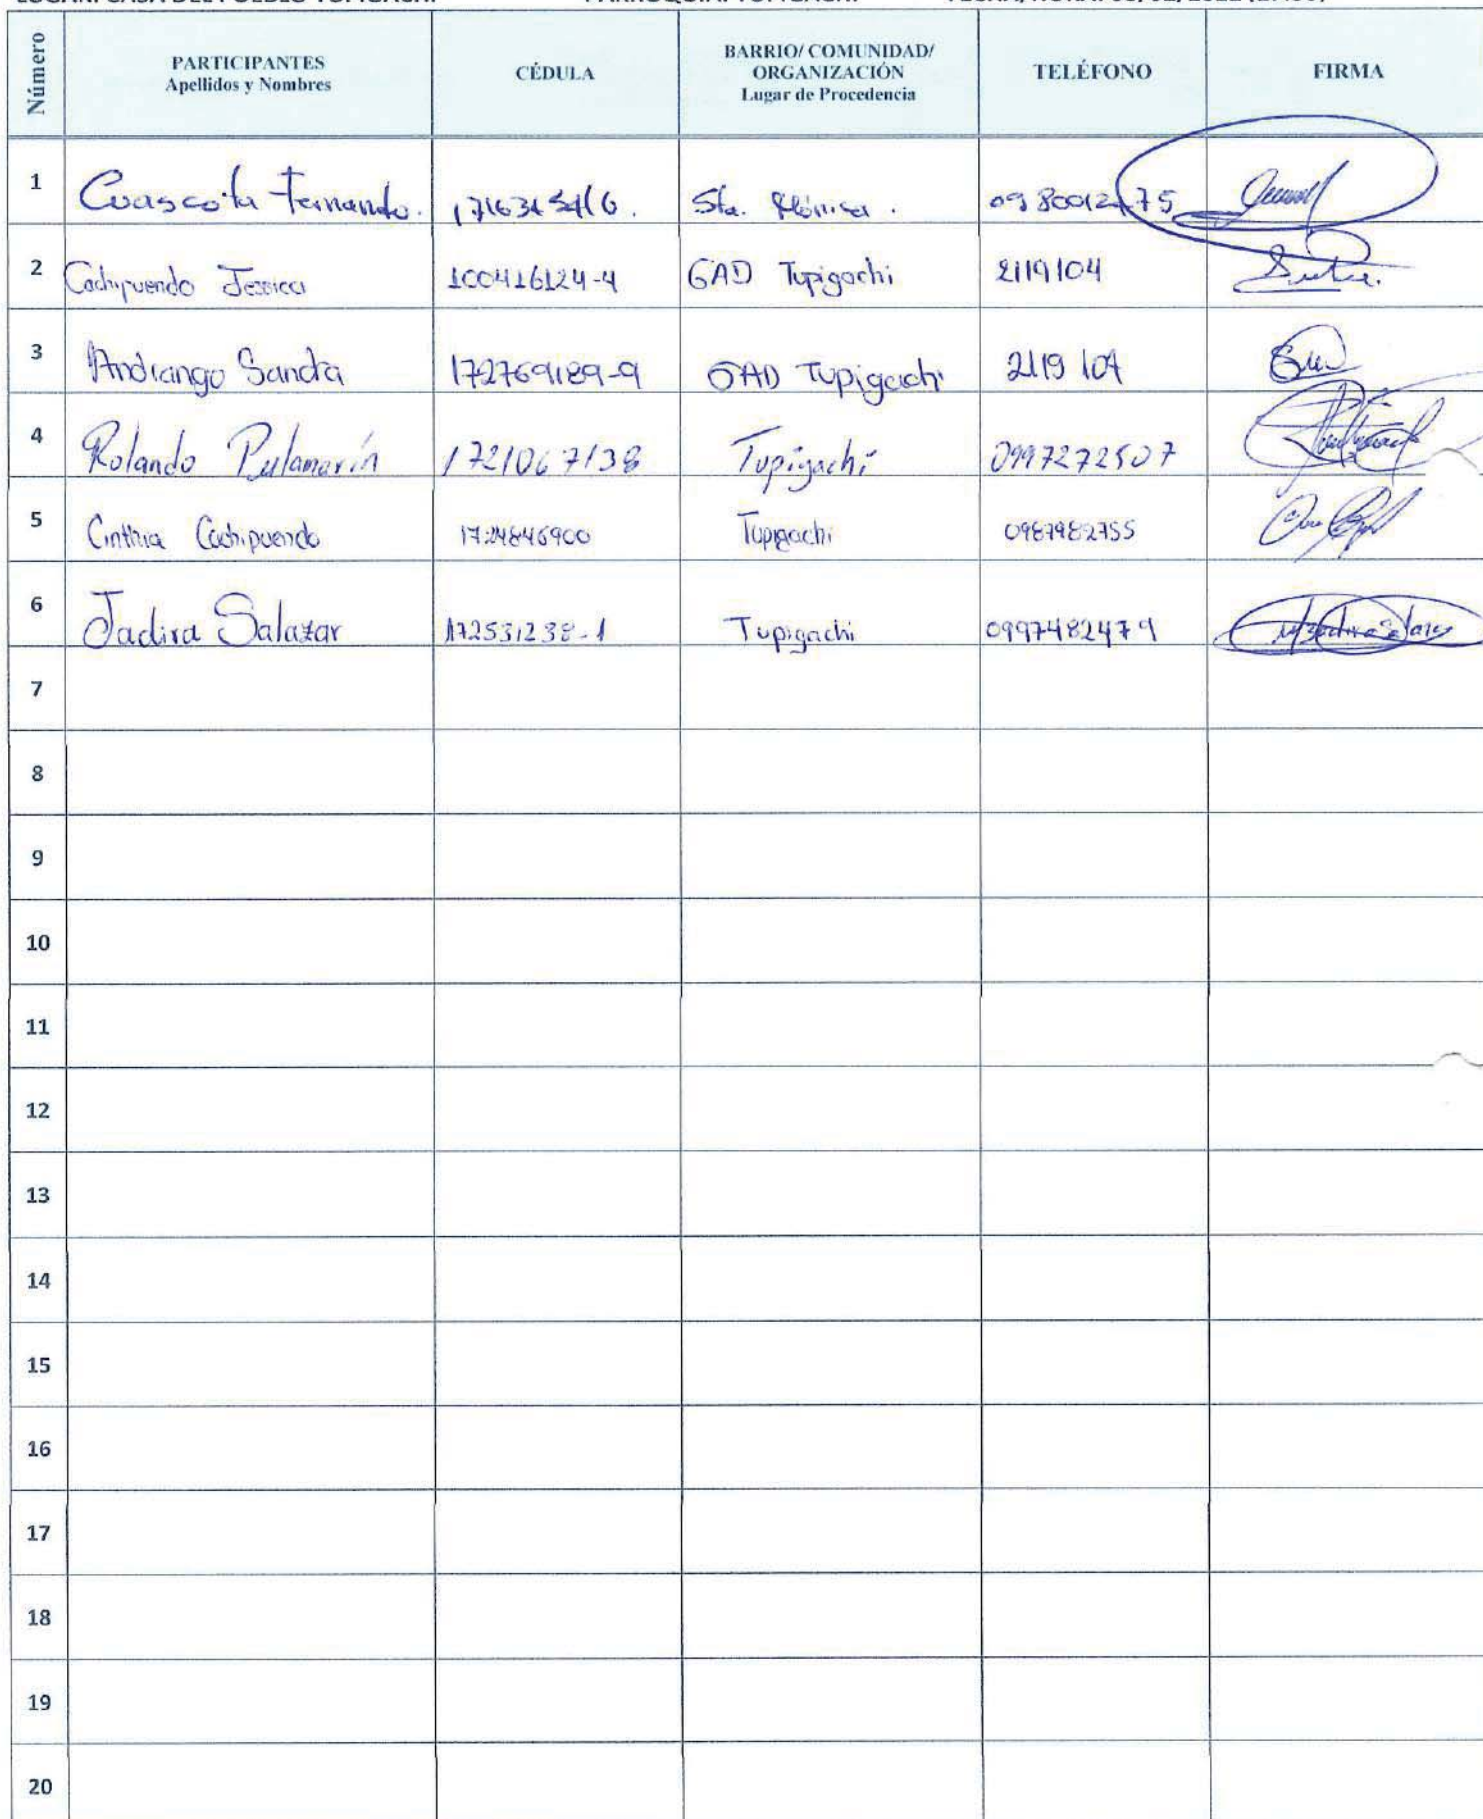 Número
PARTICIPANTES
Apellidos y Nombres
CÉDULA
BARRIO/ COMUNIDAD/
ORGANIZACIÓN
Lugar de Procedencia
TELÉFONO
FIRMA
1 Cuascota Fernando. Sta. Mónica.
2 Cachipuendo Jessica 100416124-4 GAD Tupigachi 2119104
3 Andrango Sandra 172769189-9 GAD Tupigachi 2119 104
4 Rolando Pulamarín 1721067138 Tupigachi 0997272507
5 Cinthia Cachipuendo 1724846900 Tupigachi 0987982755
6 Jadira Salazar 172531238-1 Tupigachi 0997482479
7
8
9
10
11
12
13
14
15
16
17
18
19
20